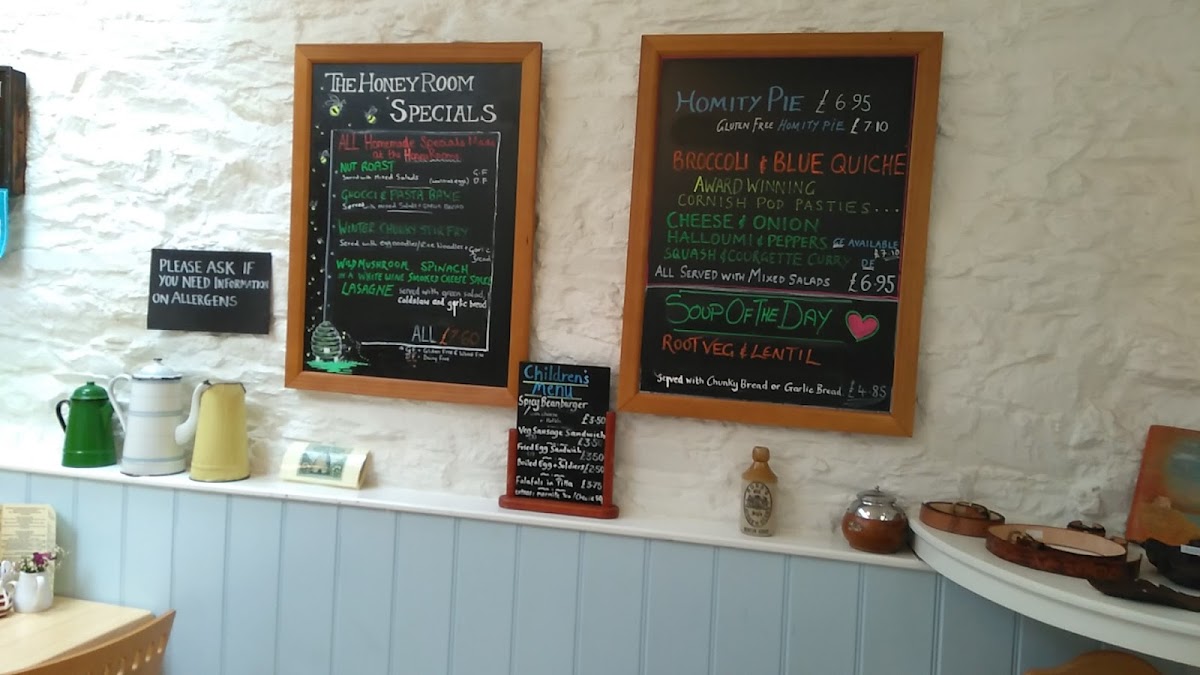 THE HONEY ROOM
SPECIALS
ALL Homemade Specials Made
at the Honey Room
NUT ROAST
Served with Mixed Salads
G.F
D.F
GNOCCI & PASTA BAKE
WINTER CHUNKY STIR FRY
Served with egg noodles/rice noodles + Garlic
bread
WILD MUSHROOM SPINACH
IN A WHITE WINE SMOKED CHEESE SAUCE
LASAGNE served with green salad,
coldslaw and garlic bread
ALL £7.60
PLEASE ASK IF
YOU NEED INFORMATION
ON ALLERGENS
Children's
Menu
Spicy Beanburger
£3.50
Veg Sausage Sandwich
£3.50
Fried Egg Sandwich
£3.50
Boiled Egg + Soldiers £2.50
Falafels in Pitta £3.75
HOMITY PIE £6.95
GLUTEN FREE HOMITY PIE £7.10
BROCCOLI & BLUE QUICHE
AWARD WINNING
CORNISH POD PASTIES...
CHEESE & ONION
HALLOUMI & PEPPERS GF AVAILABLE
£7.10
SQUASH & COURGETTE CURRY DF
ALL SERVED WITH MIXED SALADS £6.95
SOUP OF THE DAY
ROOT VEG & LENTIL
Served with Chunky Bread or Garlic Bread £4.85